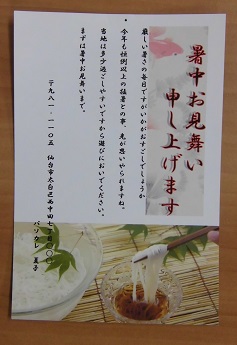 暑中お見舞い
申し上げます
厳しい暑さの毎日ですがいかがおすごしでしょうか
今年も恒例以上の猛暑との事、先が思いやられますね。
当地は多少過ごしやすいですから遊びにおいでください。
まずは暑中お見舞いまで。
〒九八一-一一〇五 仙台市太白区西中田七丁目〇〇
パソクレ 夏子